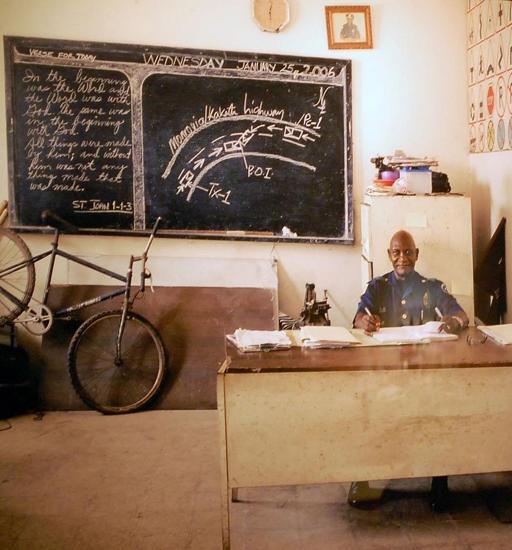 VERSE FOR TODAY
WEDNESDAY JANUARY 25, 2006
In the beginning
was the Word and
the Word was with
God. the same was
in the beginning
with God.
All things were made
by him; and without
him was not any
thing made that
was made.
ST. JOHN 1-1-3
N
Monrovia/Kakata highway
Pc-1
P.O.I.
Tk-1